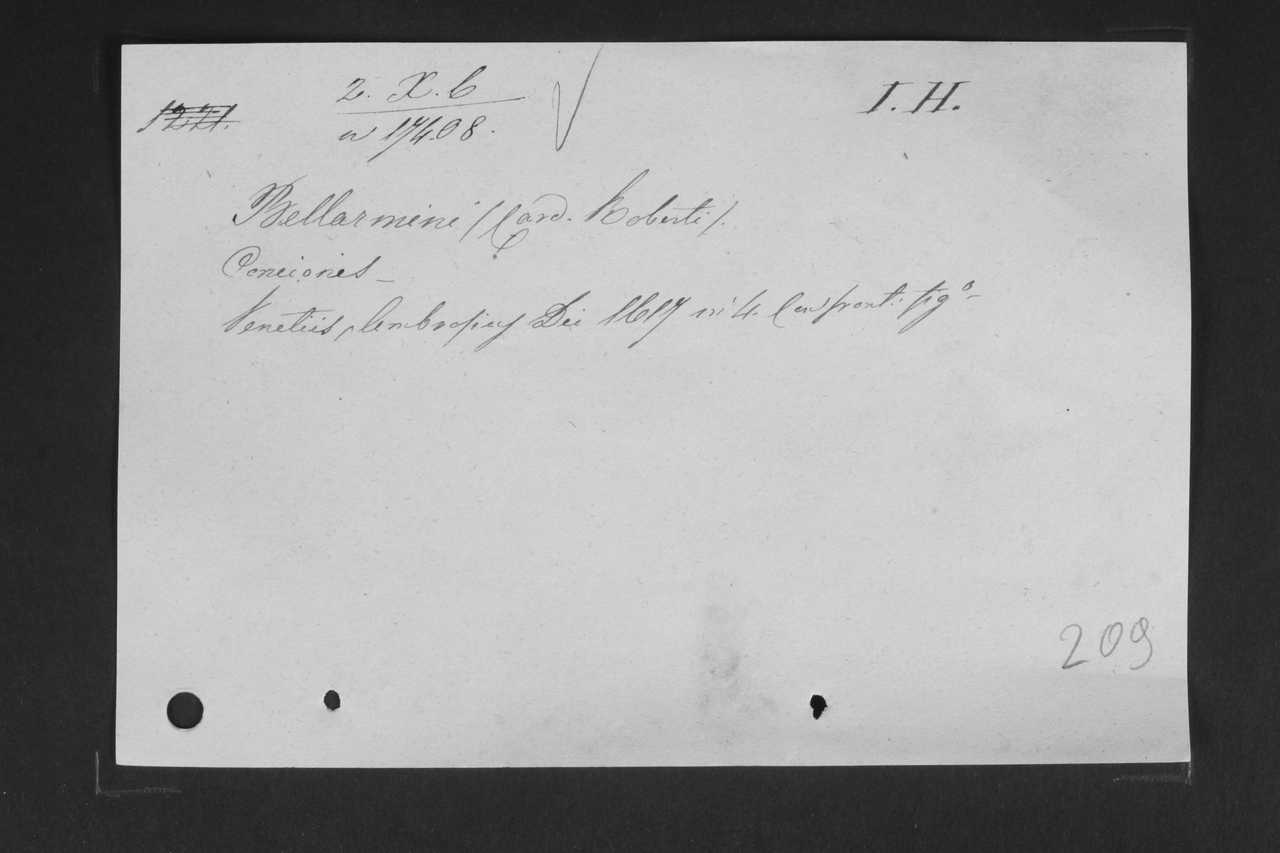 2. X. C
I. H.
1221.
n 17408.
Bellarmini (Card. Roberti).
Conciones_
Venetiis, Ambrosius Dei 1617 in 4. Con front: fig.°-
209